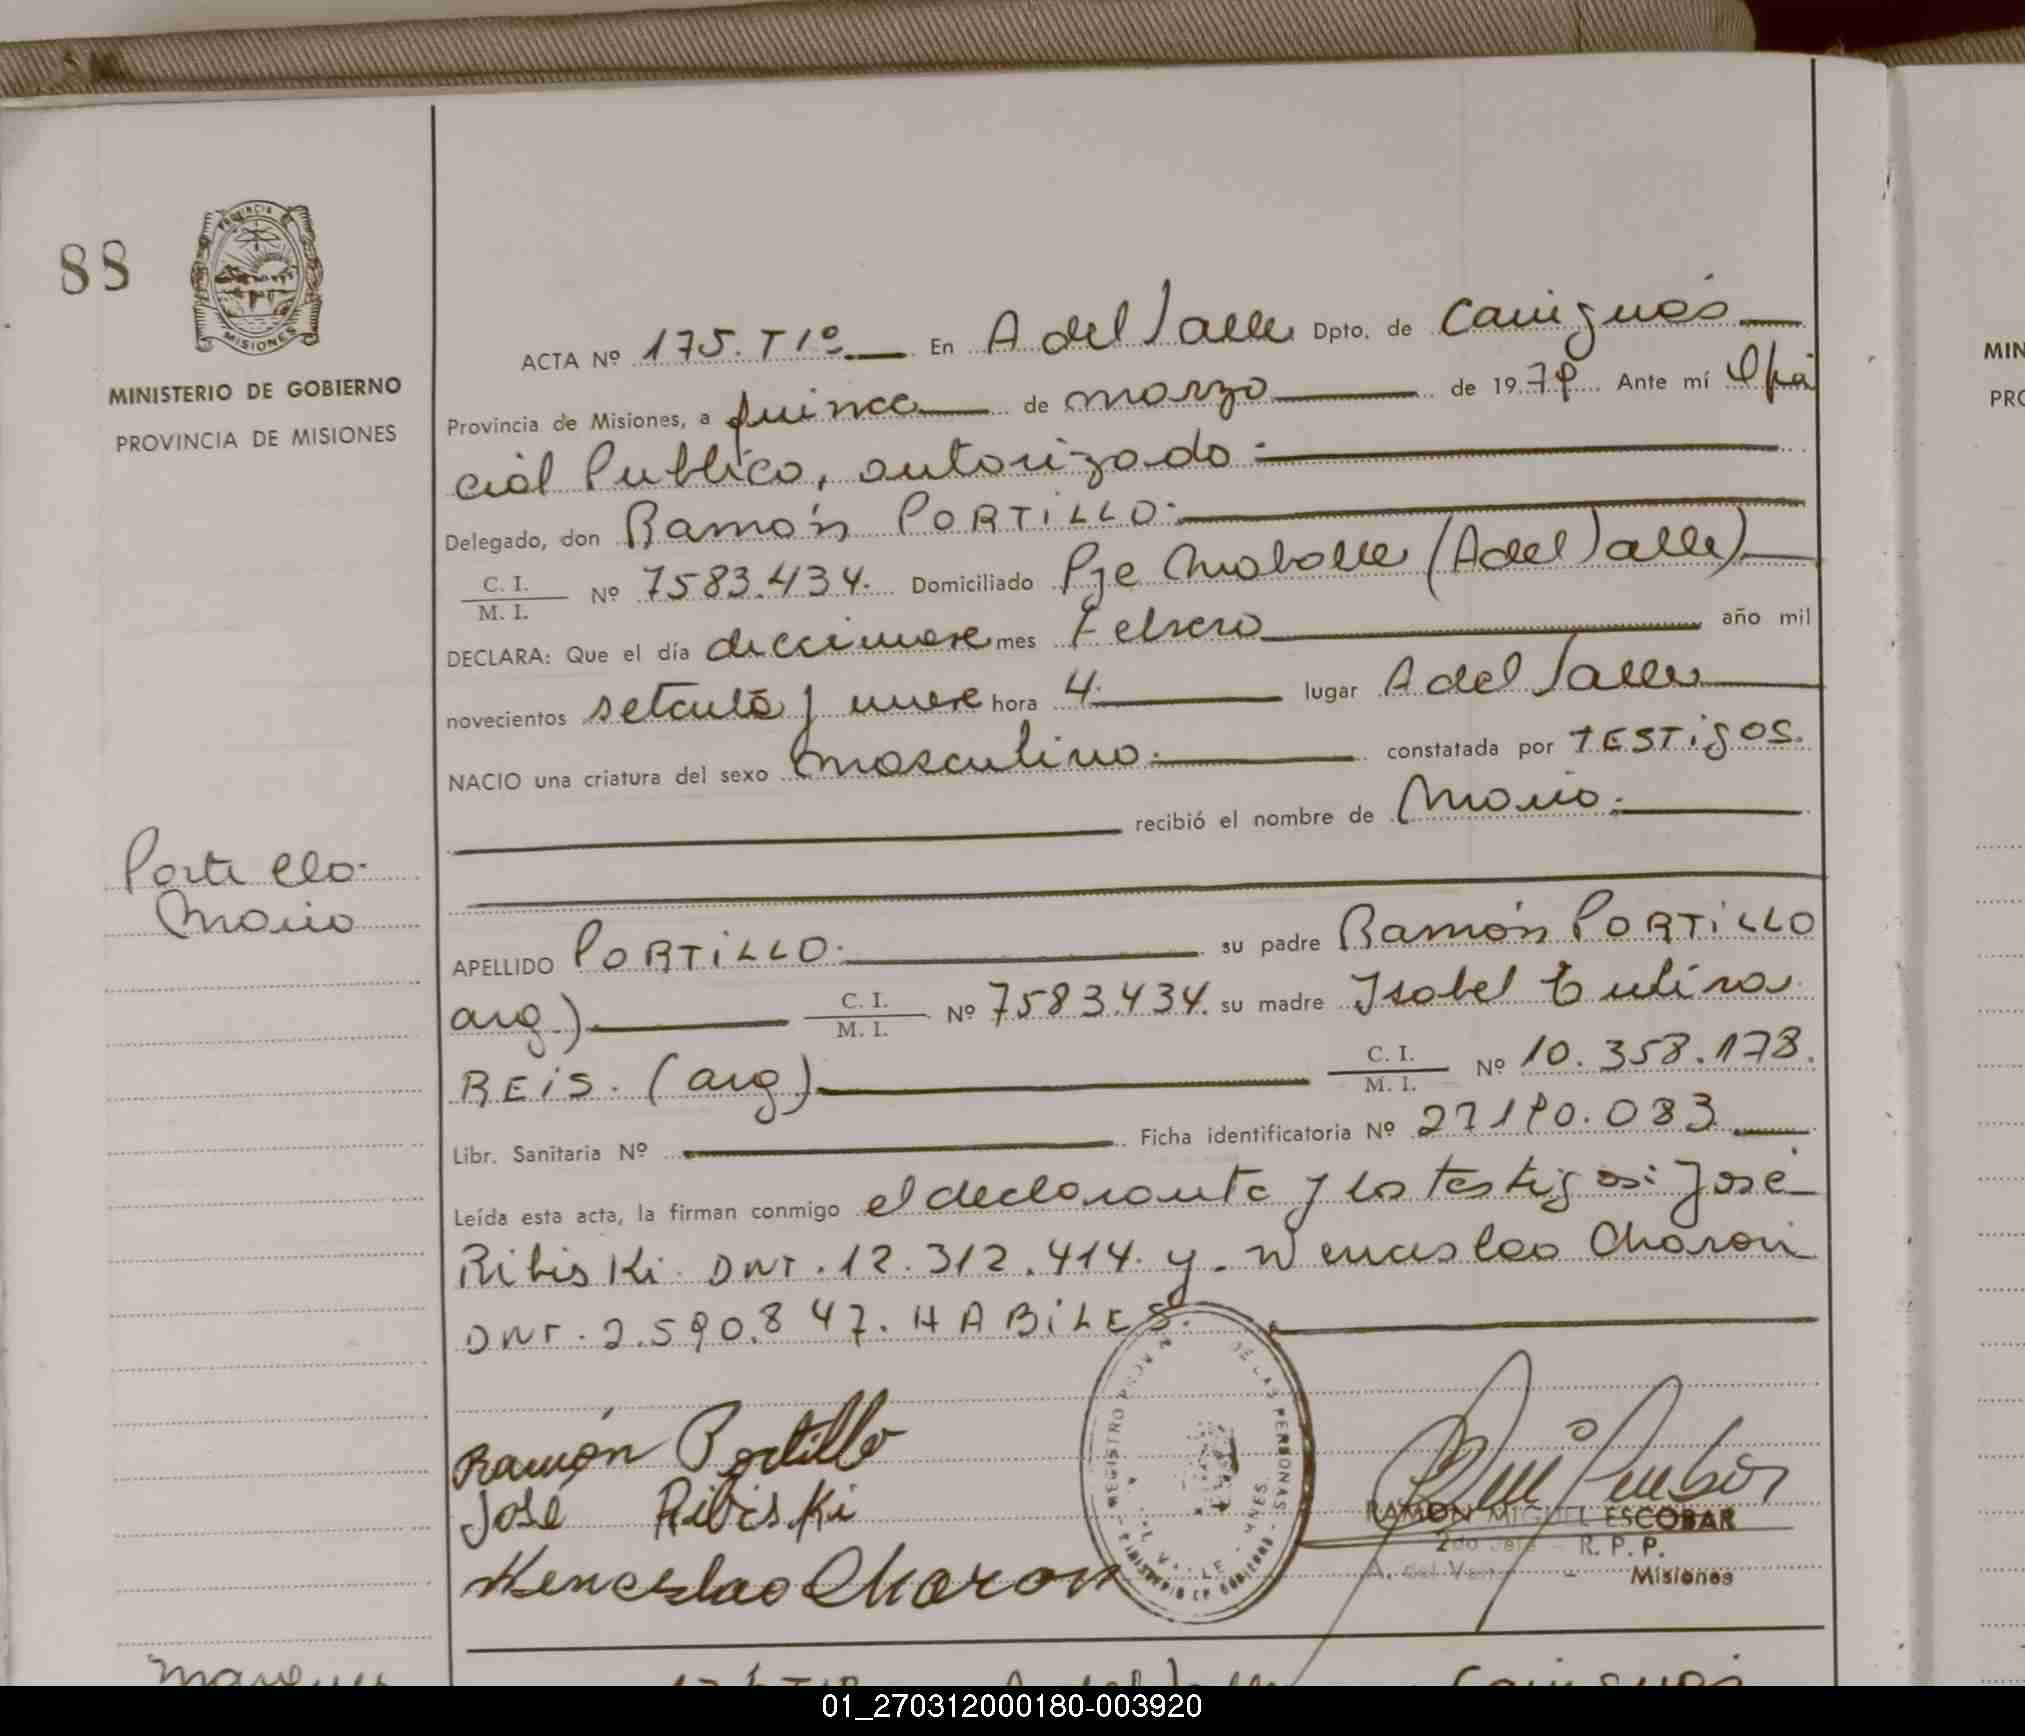 88
PROVINCIA
MISIONES
MINISTERIO DE GOBIERNO
PROVINCIA DE MISIONES
ACTA Nº 175. T1º En A del Valle Dpto. de Cainguás
Provincia de Misiones, a quince de marzo de 1979 Ante mí Ofi
cial Publico, autorizado
Delegado, don Ramón PORTiLLO
C. I.
M. I.
Nº 7583.434. Domiciliado Pje Mabolle (A del Valle)
DECLARA: Que el día diecinueve mes Febrero año mil
novecientos setenta y nueve hora 4 lugar A del Valle
NACIO una criatura del sexo masculino constatada por TESTigOS.
recibió el nombre de Mario
Portillo
Mario
APELLIDO PORTiLLO su padre Ramón PORTiLLO
arg.) C. I.
M. I.
Nº 7583.434. su madre Isabel
REiS. (arg) C. I.
M. I.
Nº 10.358.178.
Libr. Sanitaria Nº Ficha identificatoria Nº 27190.083
Leída esta acta, la firman conmigo el declarante y los testigos: José
Ribis Ki DNI. 12.312.414. y Wenceslao Charon
DNI. 2.590.847. HABiLES.
Ramón Portillo
José Ribis Ki
Wenceslao Charon
REGISTRO PROV DE LAS PERSONAS
RAMON MIGUEL ESCOBAR
2do Jefe - R. P. P.
A. del Valle - Misiones
MIN
PRO
01_270312000180-003920